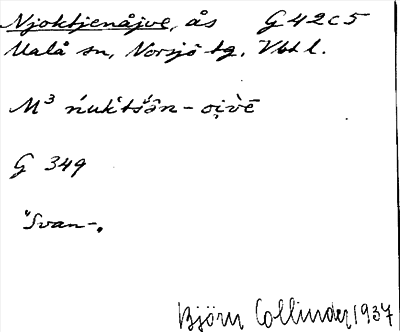 Njoktjenåjve, ås G 42c5
Malå sn, Norsjö tg. Vbtl.
M³ ńuk'tšån - oi̭vē
G 349
"Svan-".
Björn Collinder 1937